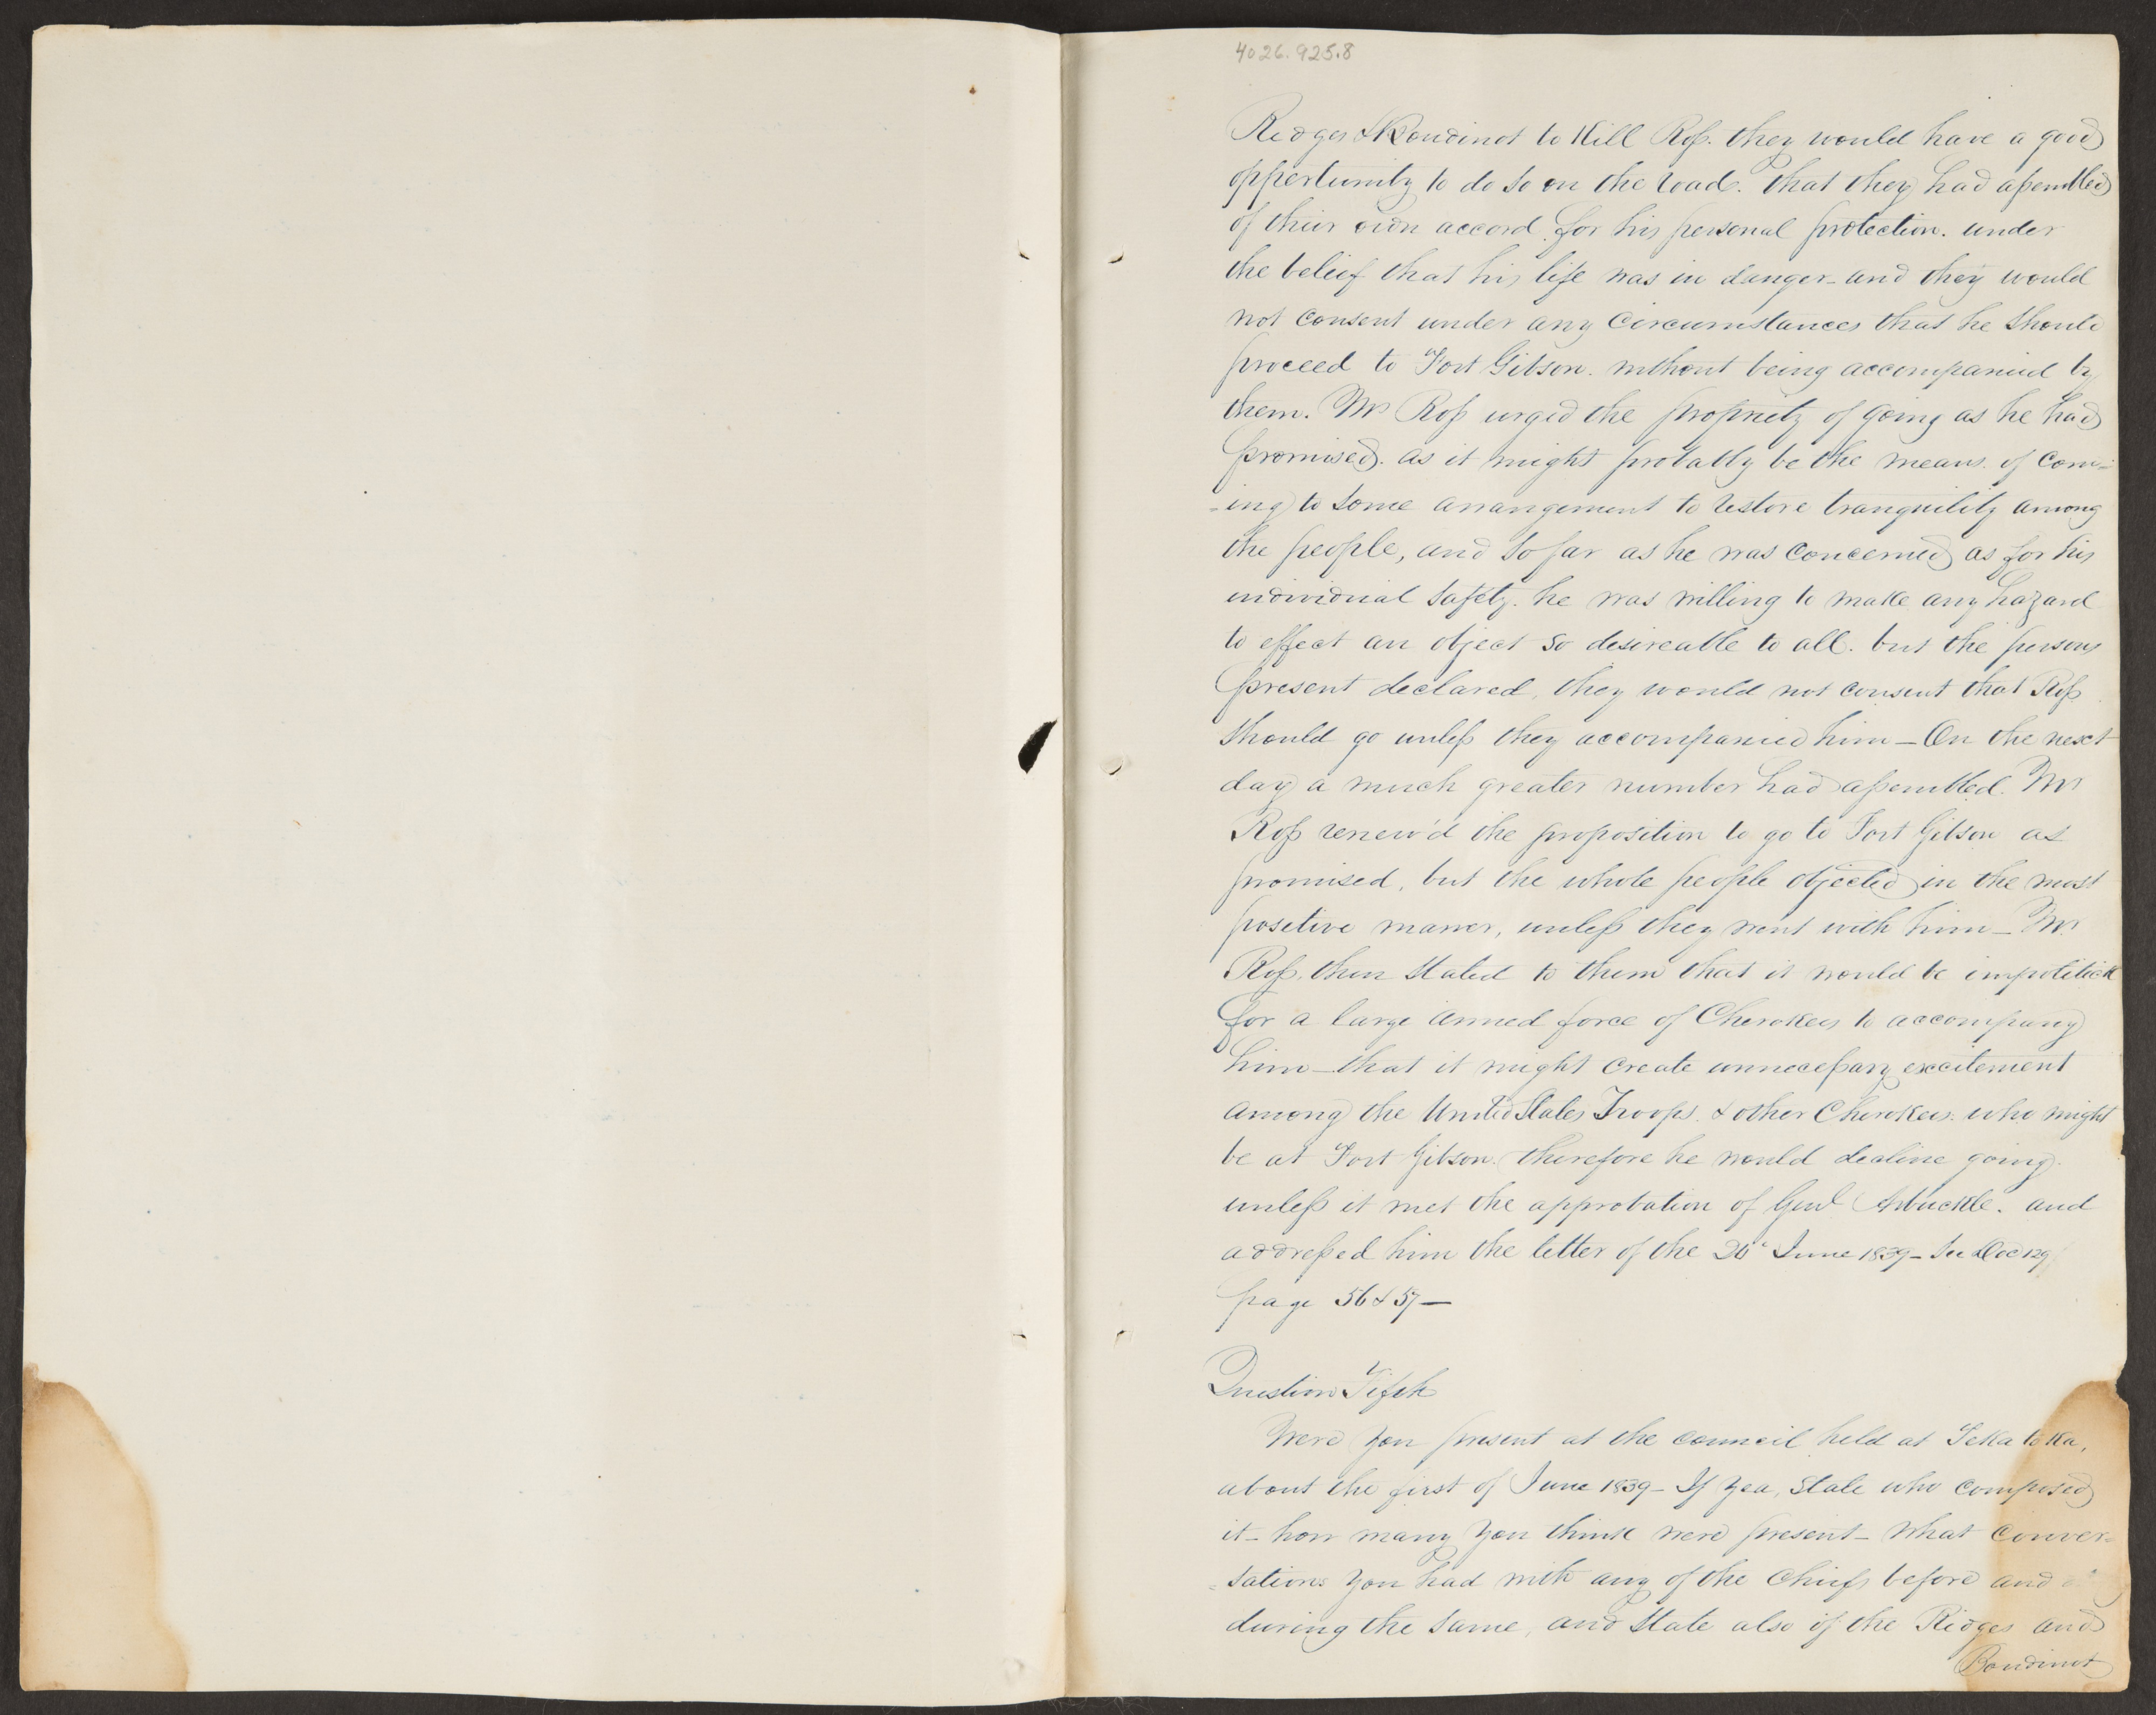 4026.925.8
Ridges & Boudinot to Kill Ross. they would have a good
oppertunity to do so on the road. that they had assembled
of their own accord for his personal protection. under
the belief that his life was in danger - and they would
not consent under any Circumstances that he should
proceed to Fort Gibson. without being accompanied by
them. Mr Ross urged the propriety of going as he had
promised. as it might probably be the means of com-
-ing to some arrangement to restore tranquility among
the people, and so far as he was concerned as for his
individual safety. he was willing to make any hazard
to effect an object so desireable to all. but the persons
present declared, they would not consent that Ross
should go unless they accompanied him — On the next
day a much greater number had assembled. Mr
Ross renew'd the proposition to go to Fort Gibson as
promised, but the whole people objected in the most
positive maner, unless they went with him — Mr
Ross. then stated to them that it would be impolitick
for a large armed force of Cherokees to accompany
him — that it might create unnecessary excitement
among the United States Troops. & other Cherokees. who might
be at Fort Gibson. therefore he would decline going.
unless it met the approbation of Genl Arbuckle. and
addressed him the letter of the June 1839 - See Doc 129
page 56 & 57 —
Question Fifth
Were you present at the council held at Teka to Ka,
about the first of June 1839 - If yea, state who composed
it - how many you think were present - what conver-
-sations you had with any of the Chiefs before and
during the same, and state also if the Ridges and
Boudinot